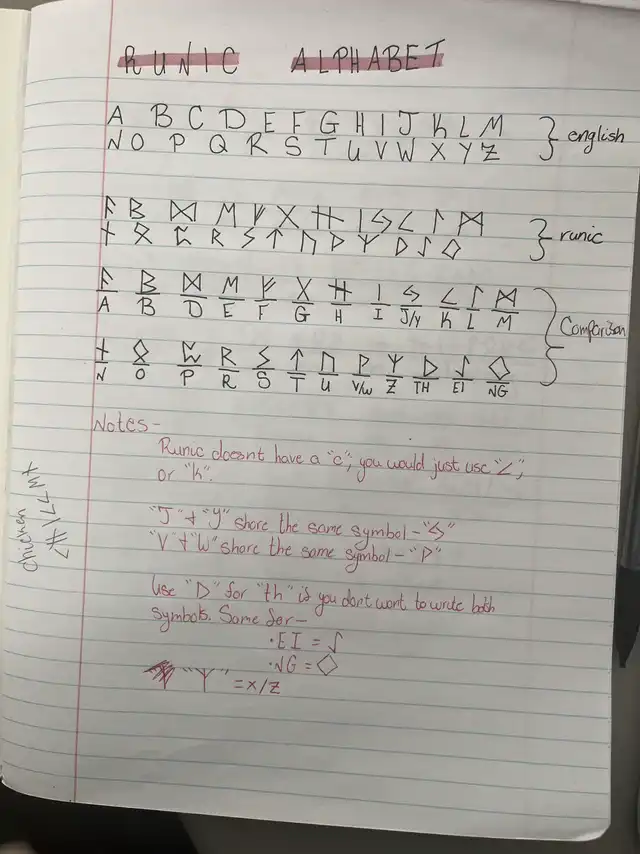 RUNIC ALPHABET
A B C D E F G H I J K L M
N O P Q R S T U V W X Y Z
} english
ᚨ ᛒ ᛞ ᛖ ᚠ ᚷ ᚺ ᛁ ᛃ ᚲ ᛚ ᛗ
ᚾ ᛟ ᛈ ᚱ ᛊ ᛏ ᚢ ᚹ ᛉ ᚦ ᛇ ᛜ
} runic
ᚨ ᛒ ᛞ ᛖ ᚠ ᚷ ᚺ ᛁ ᛃ ᚲ ᛚ ᛗ
A B D E F G H I J/Y K L M
ᚾ ᛟ ᛈ ᚱ ᛊ ᛏ ᚢ ᚹ ᛉ ᚦ ᛇ ᛜ
N O P R S T U V/W Z TH EI NG
} Comparison
Notes-
Runic doesnt have a "c", you would just use "ᚲ",
or "k".
"J" + "Y" share the same symbol - "ᛃ"
"V" + "W" share the same symbol - "ᚹ"
Use "ᚦ" for "th" if you dont want to write both
symbols. Same for-
·EI = ᛇ
·NG = ᛜ
"ᛉ" = X/Z
chicken